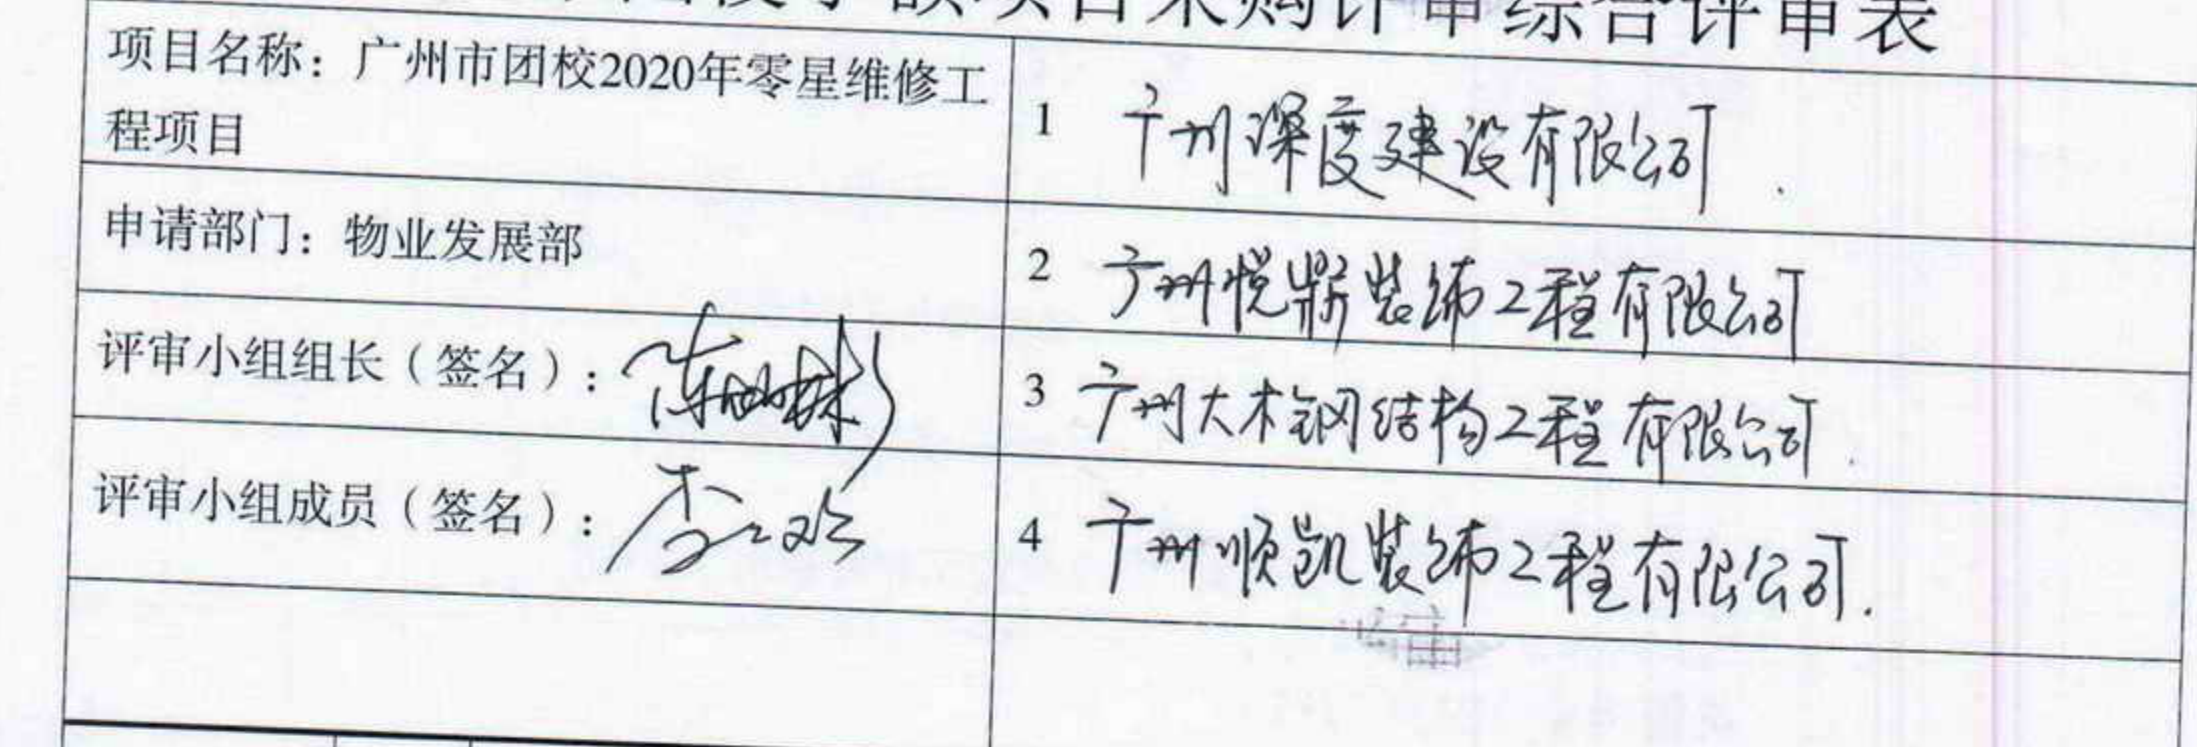 项目采购评审综合评审表
项目名称：广州市团校2020年零星维修工
程项目
1 广州深度建设有限公司
申请部门：物业发展部
2 广州悦鼎装饰工程有限公司
评审小组组长（签名）：
3 广州大木钢结构工程有限公司
评审小组成员（签名）：
4 广州顺凯装饰工程有限公司.